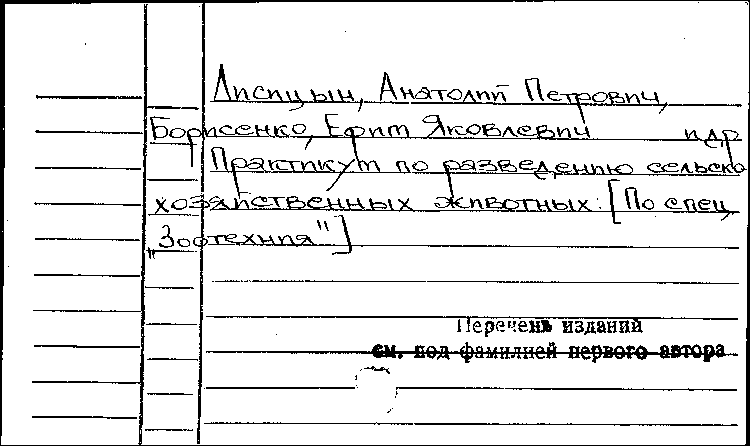 Лисицын, Анатолий Петрович,
Борисенко, Ефим Яковлевич и др
Практикум по разведению сельско
хозяйственных животных: [По спец.
"Зоотехния"]
Перечень изданий
см. под фамилией первого автора